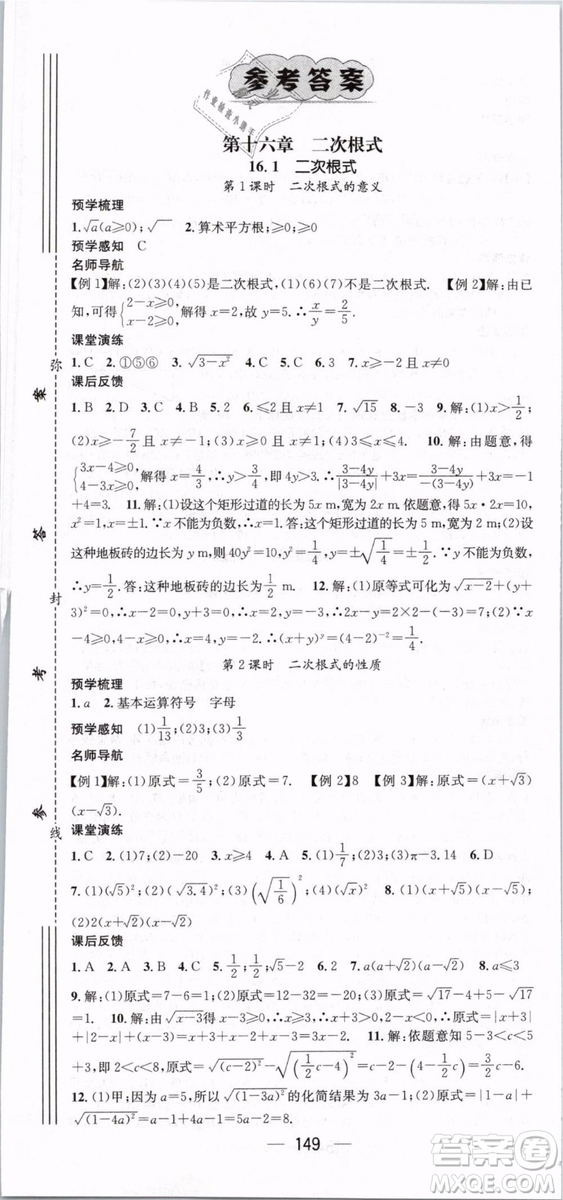 参考答案
第十六章 二次根式
16.1 二次根式
第1课时 二次根式的意义
预学梳理
1.√a(a≥0);√ 2.算术平方根;≥0;≥0
预学感知 C
名师导航
【例1】解:(2)(3)(4)(5)是二次根式,(1)(6)(7)不是二次根式. 【例2】解:由已
知,可得{2-x≥0, x-2≥0, 解得x=2,故y=5,∴x/y=2/5.
课堂演练
1.C 2.①⑤⑥ 3.√(3-x²) 4.C 5.A 6.C 7.x≥-1且x≠0
课后反馈
1.B 2.D 3.A 4.C 5.D 6.≤2且x≠1 7.√15 8.-3 9.解:(1)x>1/2;
(2)x≥-7/2且x≠-1;(3)x≥3且x≠4. 10.解:由题意,得
{3x-4≥0, 4-3x≥0, 解得x=4/3,∴y>4/3,∴|3-4y|/(3-4y)+4=(3-4y)/|3-4y|+4=-1
+4=3. 11.解:(1)设这个矩形过道的长为5x m,宽为2x m.依题意,得5x·2x=10,
x²=1,∴x=±1.∵x不能为负数,∴x=1.答:这个矩形过道的长为5 m,宽为2 m;(2)设
这种地板砖的边长为y m,则40y²=10,y²=1/4,∴y=±√(1/4)=±1/2.∵y不能为负
数,∴y=1/2.答:这种地板砖的边长为1/2 m. 12.解:(1)原等式可化为√(x-2)+(y+
3)²=0,∴x-2=0,y+3=0,∴x=2,y=-3,∴x-2y=2-2×(-3)=8;(2)∵x
-4≥0,8-2x≥0,∴x=4,∴y=-2,∴(x+y)⁻²=(4-2)⁻²=1/4.
第2课时 二次根式的性质
预学梳理
1.a 2.基本运算符号 字母
预学感知 (1)1/13;(2)3;(3)1/9
名师导航
【例1】解:(1)原式=3/5;(2)原式=7. 【例2】8 【例3】解:(1)原式=(x+√3)
(x-√3).
课堂演练
1.C 2.(1)7;(2)-20 3.x≥4 4.B 5.(1)1/7;(2)3;(3)π-3.14 6.D
7.(1)(√5)²;(2)(√3.49)²;(3)(√(1/6))² 8.解:(1)原式=(x+√5)(x-√5);
(2)2(x+√2)(x-√2)
课后反馈
1.A 2.A 3.D 4.D 5.B 6.1/2;1/2;√5-1/2 7.a(a+√2)(a-√2) 8.a≤3
9.解:(1)原式=7-6=1;(2)原式=13-12=1;(3)原式=√17-4+5-√17
=1. 10.解:由√(x-3)有意义,得x≥3.∴原式=x+x+x=3x. 11.解:依题意可
得2<c<8,∴原式=√((c-2)²)-√((1/2c-4)²)=c-2-(4-1/2c)=3/2c-6.
12.(1)甲;因为a=5,所以√((1-3a)²)的化简结果为3a-1;(2)原式=|1-a|+
√((1-4a)²)=a-1+4a-1=5a-2=8.
149
弥
封
线
参
考
答
案
答案圈